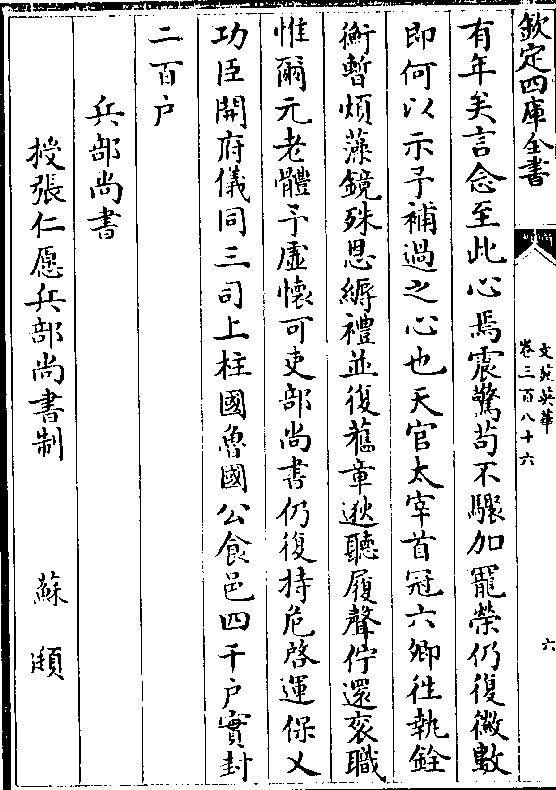 欽定四庫全書
文苑英華
卷三百八十六
六
有年矣言念至此心焉震驚苟不驟加寵榮仍復徽數
即何以示予補過之心也天官太宰首冠六卿徃執銓
衡暫煩藻鏡殊恩縟禮並復舊章逖聽履聲佇還衮職
惟爾元老體予虛懷可吏部尚書仍復持危啓運保乂
功臣開府儀同三司上柱國魯國公食邑四千户實封
二百户
兵部尚書
授張仁愿兵部尚書制
蘇頲